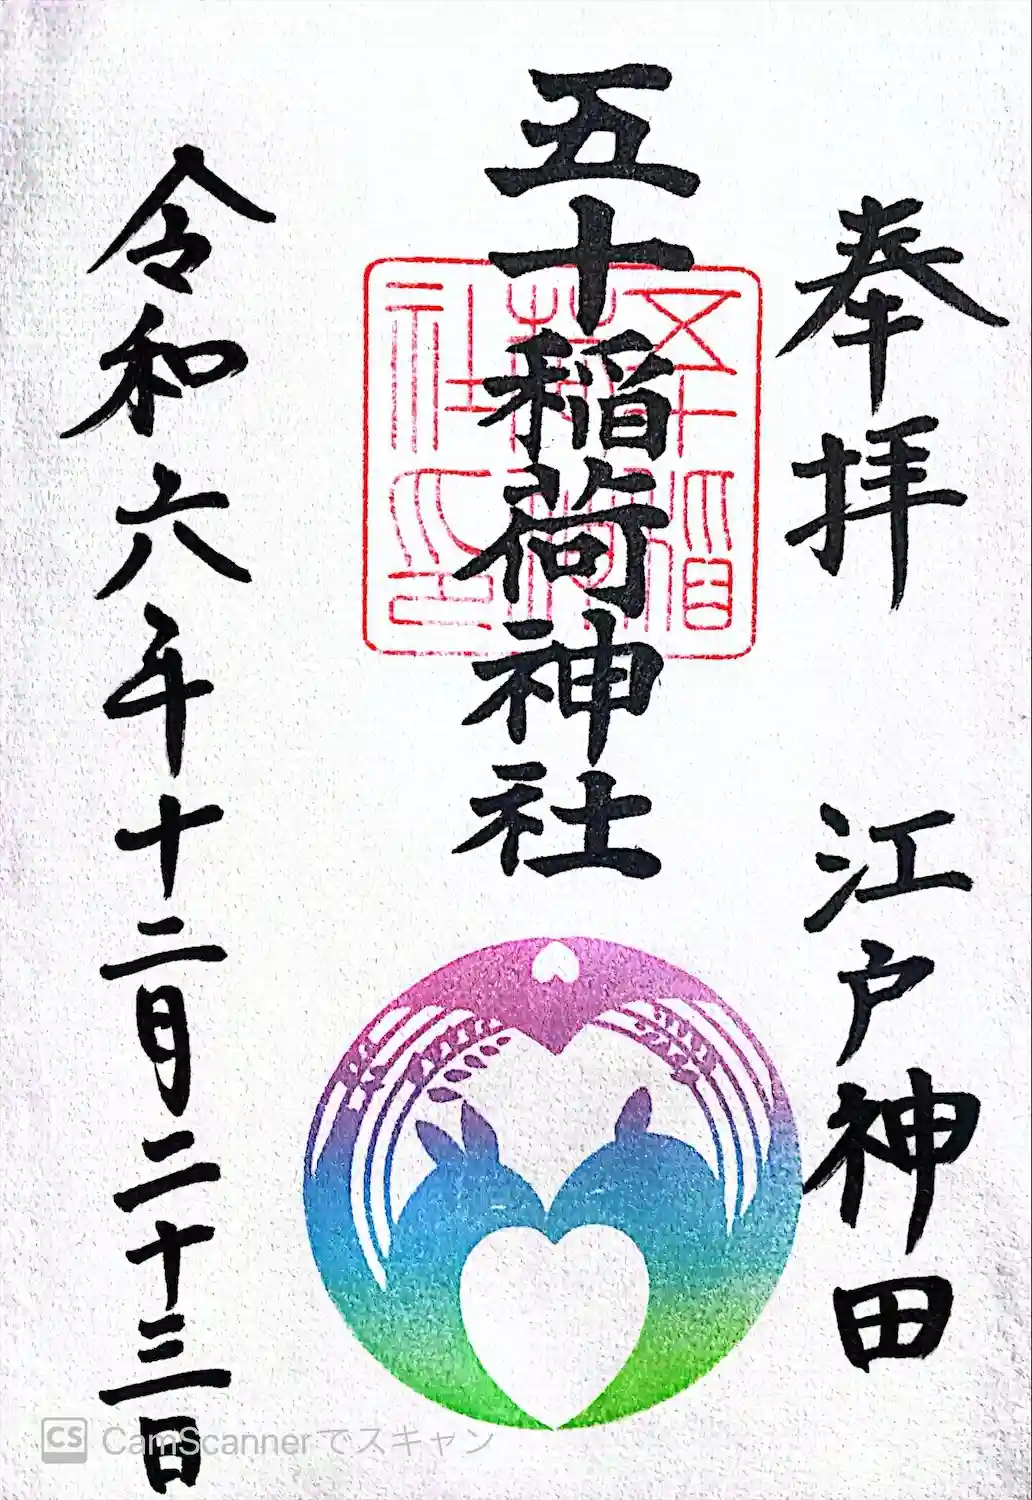 奉拝 江戸神田
五十稲荷神社
五十稲荷神社之印
令和六年十二月二十三日
CS CamScannerでスキャン